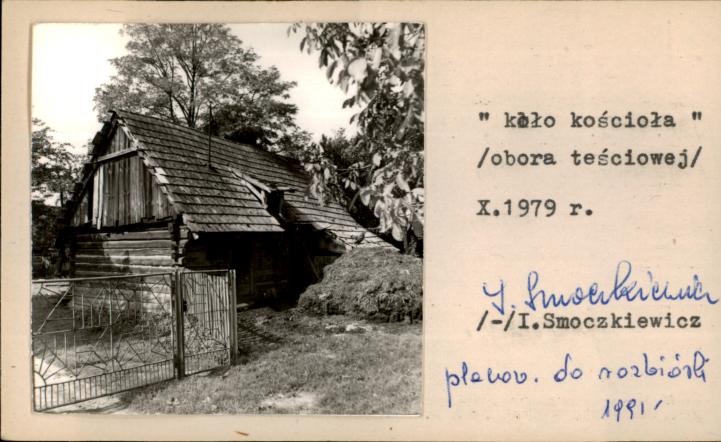 " koło kościoła "
/obora teściowej/
X.1979 r.
I. Smoczkiewicz
/-/I.Smoczkiewicz
planow. do rozbiórki
1991